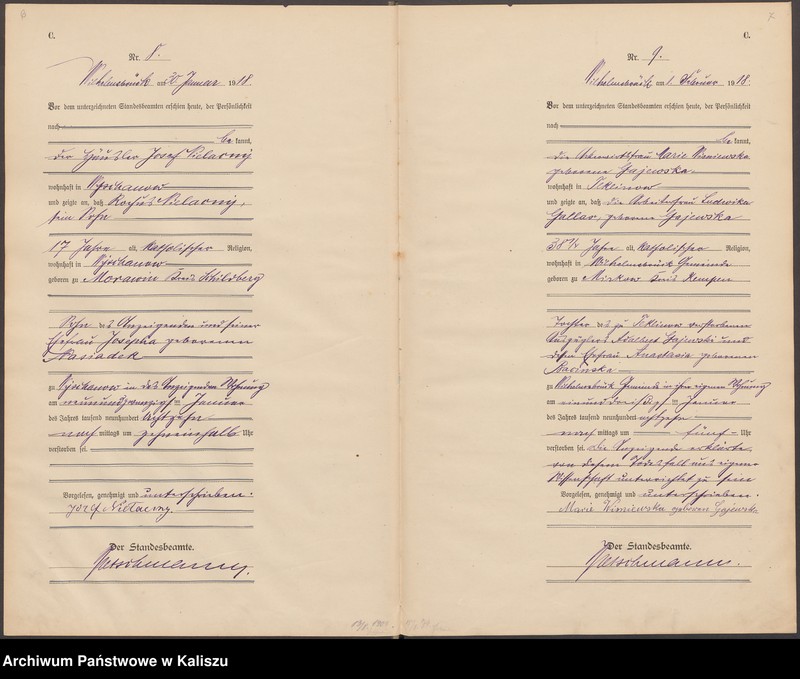 C.
Nr. 8.
Wilhelmsbrück am 30 Januar 1918
Vor dem unterzeichneten Standesbeamten erschien heute, der Persönlichkeit
nach
be kannt,
der Häusler Josef
wohnhaft in
und zeigte an, daß
sein Sohn
17 Jahre alt, katholischer Religion,
wohnhaft in
geboren zu Morawin Kreis Schildberg
Sohn des Anzeigenden und seiner
Ehefrau Josepha geborenen
Nasiadek
zu in des Anzeigenden Wohnung
am neunundzwanzigsten Januar
des Jahres tausend neunhundert achtzehn
nach mittags um zehneinhalb Uhr
verstorben sei.
Vorgelesen, genehmigt und unterschrieben.
Der Standesbeamte.
C.
Nr. 9.
Wilhelmsbrück am 1 Februar 1918.
Vor dem unterzeichneten Standesbeamten erschien heute, der Persönlichkeit
nach
be kannt,
die Marie
geborene Gajewska
wohnhaft in Teklinow
und zeigte an, daß die Arbeiterfrau Ludwika
Gallas, geborene Gajewska
38 3/4 Jahre alt, katholischer Religion,
wohnhaft in Wilhelmsbrück Gemeinde
geboren zu Mirkow Kreis Kempen
Tochter des zu Teklinow verstorbenen
Auszüglers Adalbert Gajewski und
dessen Ehefrau Anastasia geborenen
zu Wilhelmsbrück Gemeinde in ihrer eigenen Wohnung
am einunddreißigsten Januar
des Jahres tausend neunhundert achtzehn
nach mittags um fünf Uhr
verstorben sei. Die Anzeigende erklärte,
von diesem Todesfall aus eigener
Wissenschaft unterrichtet zu sein
Vorgelesen, genehmigt und unterschrieben.
Marie geboren
Der Standesbeamte.
Archiwum Państwowe w Kaliszu